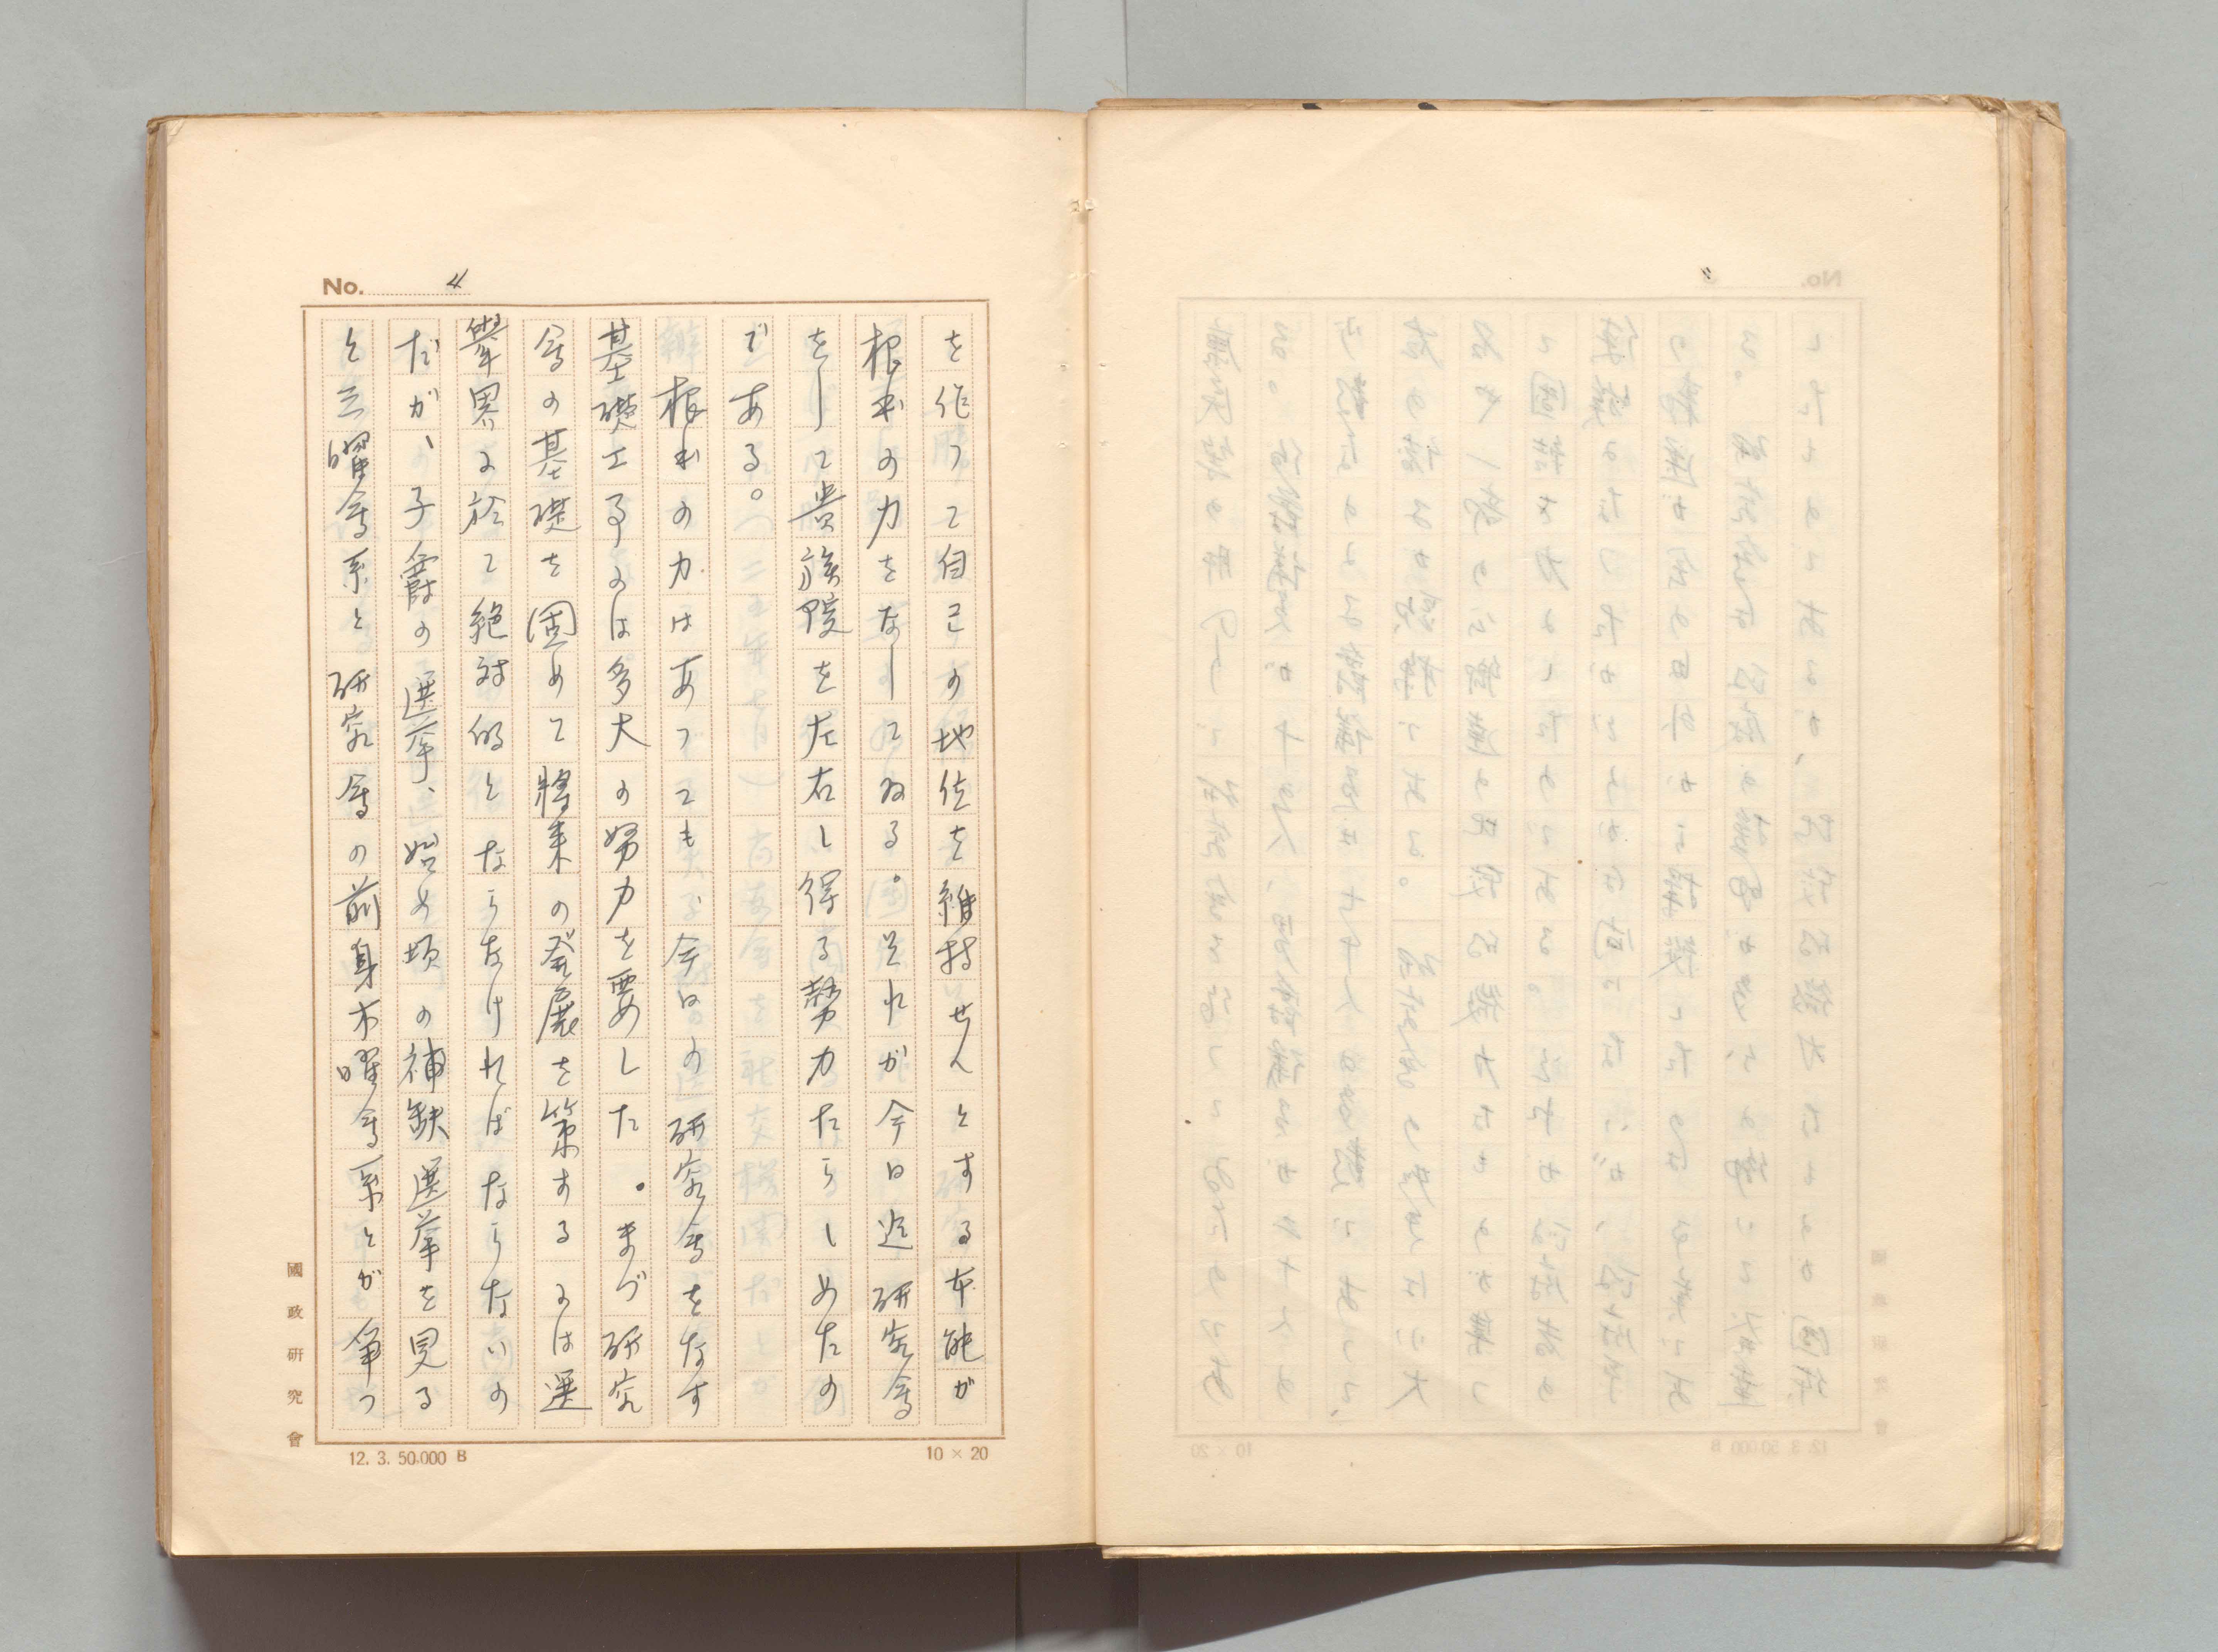 No. 4
を作つて自己の地位を維持せんとする本能が
根本の力をなしてゐる。それが今日迄研究会
をして貴族院を左右し得る勢力たらしめたの
である。
根本の力はあつても今日の研究会をなす
基礎工事には多大の努力を要した。まづ研究
会の基礎を固めて将来の発展を策するには選
挙界に於て絶対的とならなければならないの
だが、子爵の選挙、始め頃の補缺選挙を見る
と三曜会系と研究会の前身木曜会系とが争つ
國政研究會
12. 3. 50,000 B
10 × 20